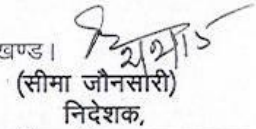 खण्ड।
(सीमा जौनसारी)
निदेशक,